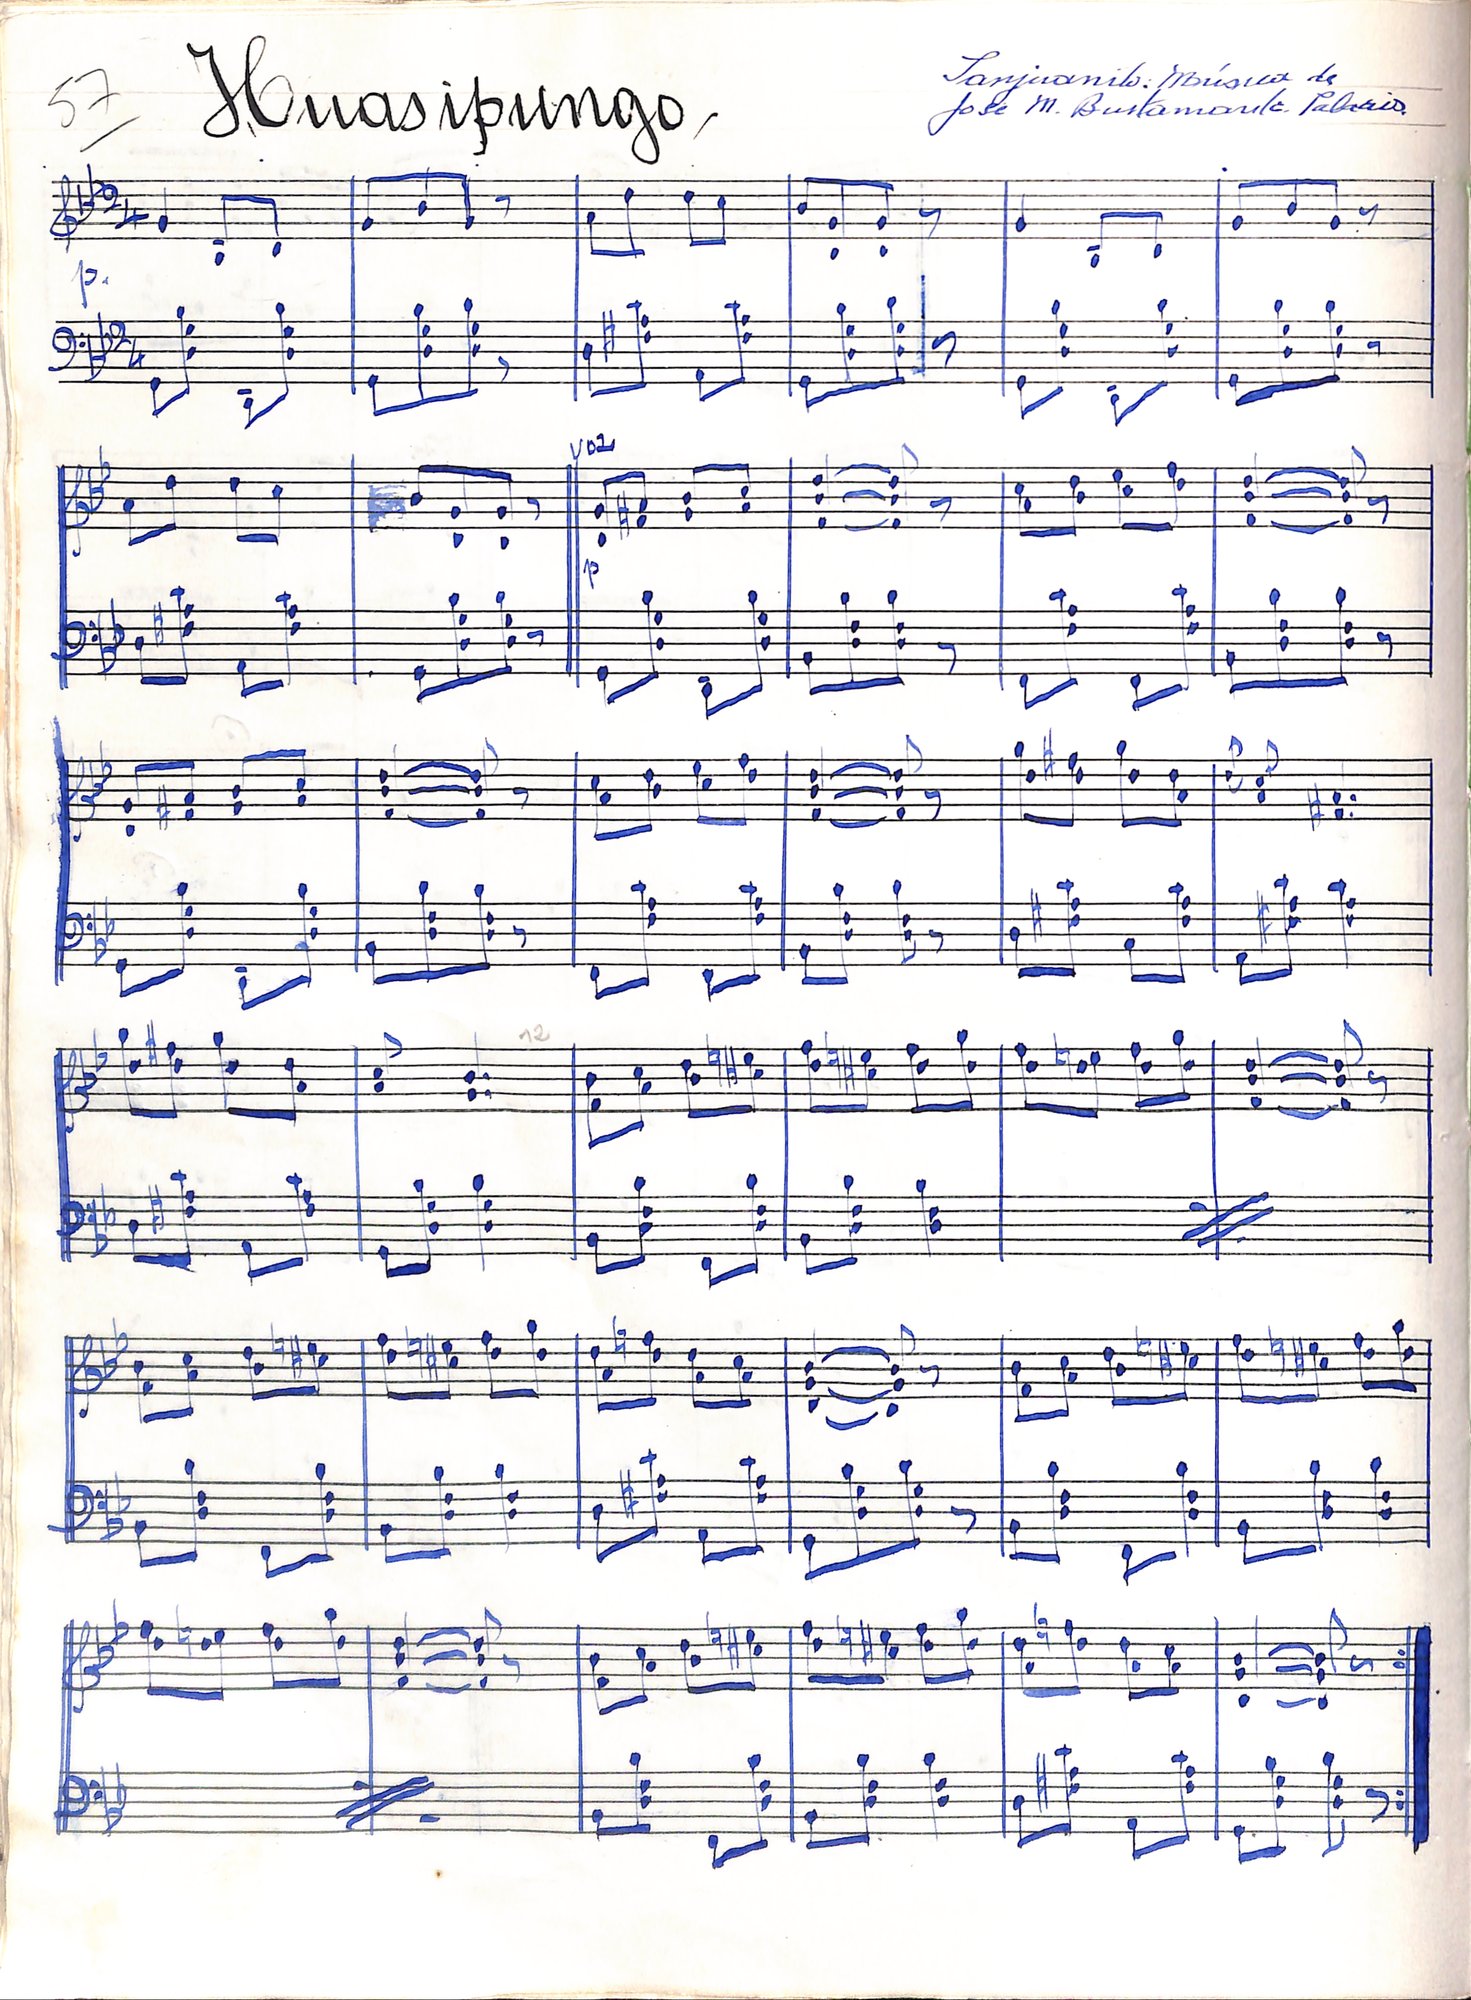 57
Huasipungo
Sanjuanito: Música de
José M. Bustamante Palacio.
2
4
p.
2
4
voz
p
12